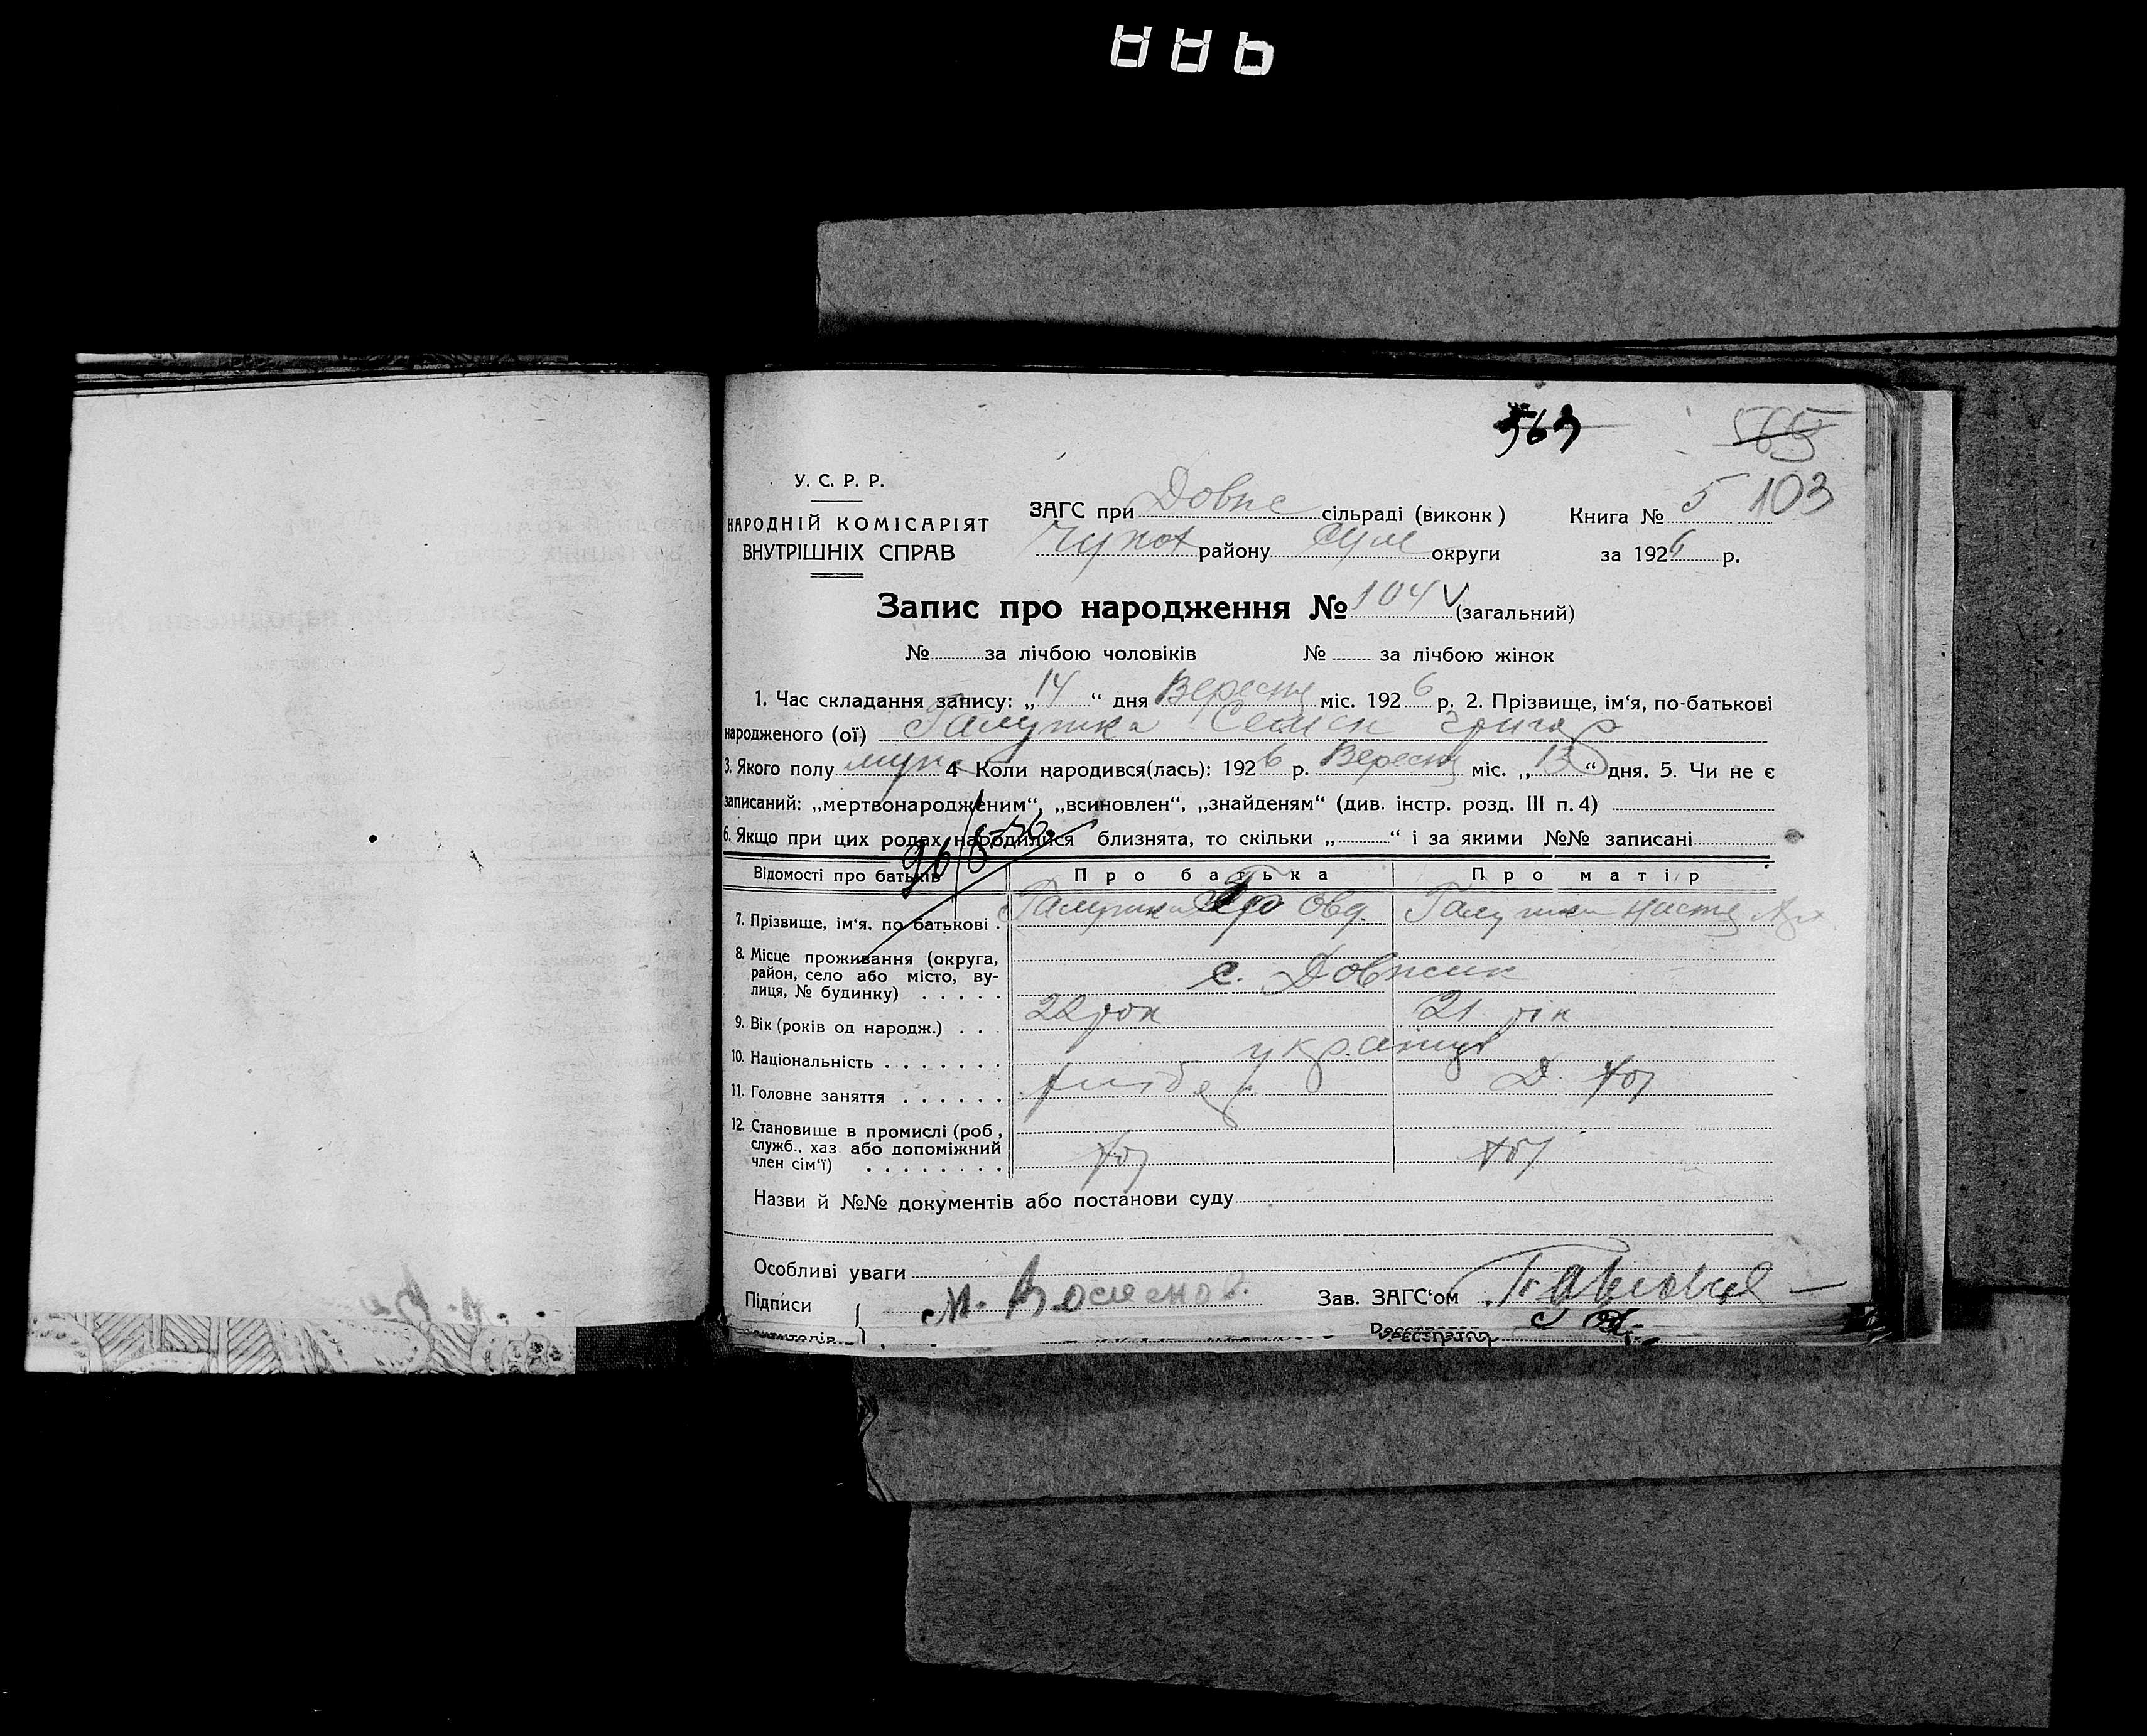 563 565
У. С. Р. Р.
НАРОДНІЙ КОМІСАРІЯТ
ВНУТРІШНІХ СПРАВ
ЗАГС при Довж с сільраді (виконк)
району Сум округи
Книга № 5 103
за 1926 р.
Запис про народження № 104 V (загальний)
№ за лічбою чоловіків № за лічбою жінок
1. Час складання запису: „ 14 “ дня Вересня міс. 1926 р. 2. Прізвище, ім‘я, по-батькові
народженого (ої) Галушка Семен Григор
3. Якого полу муж 4. Коли народився(лась): 1926 р. Вересня міс. „ 13 “ дня. 5. Чи не є
записаний: „мертвонародженим“, „всиновлен“, „знайденям“ (див. інстр. розд. III п. 4)
6. Якщо при цих родах народилися близнята, то скільки „ “ і за якими №№ записані
Відомості про батьків Про батька Про матір
7. Прізвище, ім‘я, по батькові . Галушка Гр Овд. Галушка Наст
8. Місце проживання (округа,
район, село або місто, ву-
лиця, № будинку) . . . . . с. Довжик
9. Вік (років од народж.) . . . 22 рок 21 рік
10. Національність . . . . . . . українці
11. Головне заняття . . . . . . хлібор Д. хоз
12. Становище в промислі (роб.,
служб., хаз або допоміжний
член сім‘ї) . . . . . . . . хоз хоз
Назви й №№ документів або постанови суду
Особливі уваги
Підписи { М. Зав. ЗАГС‘ом